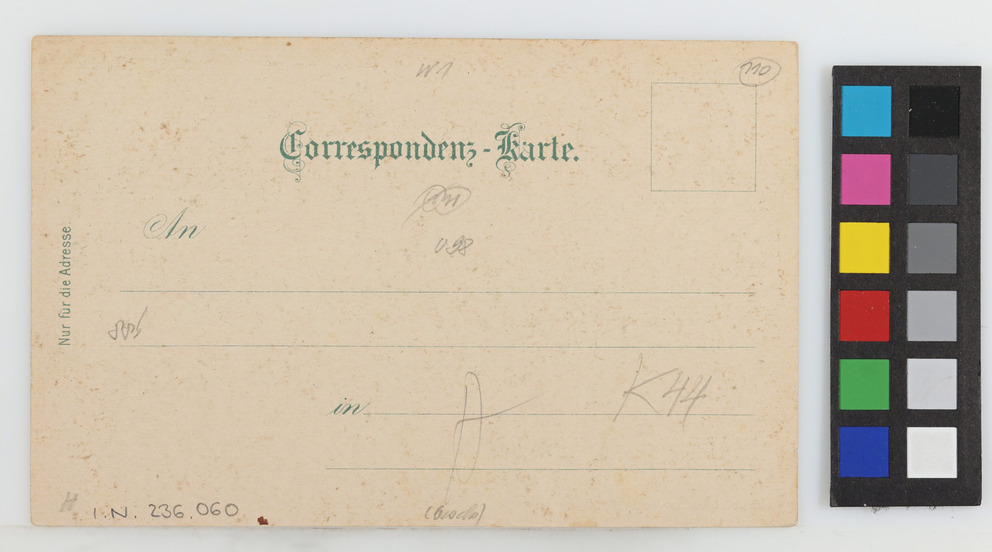 W 1
110
Correspondenz-Karte.
An
Nur für die Adresse.
in
K 44
H
I.N. 236.060